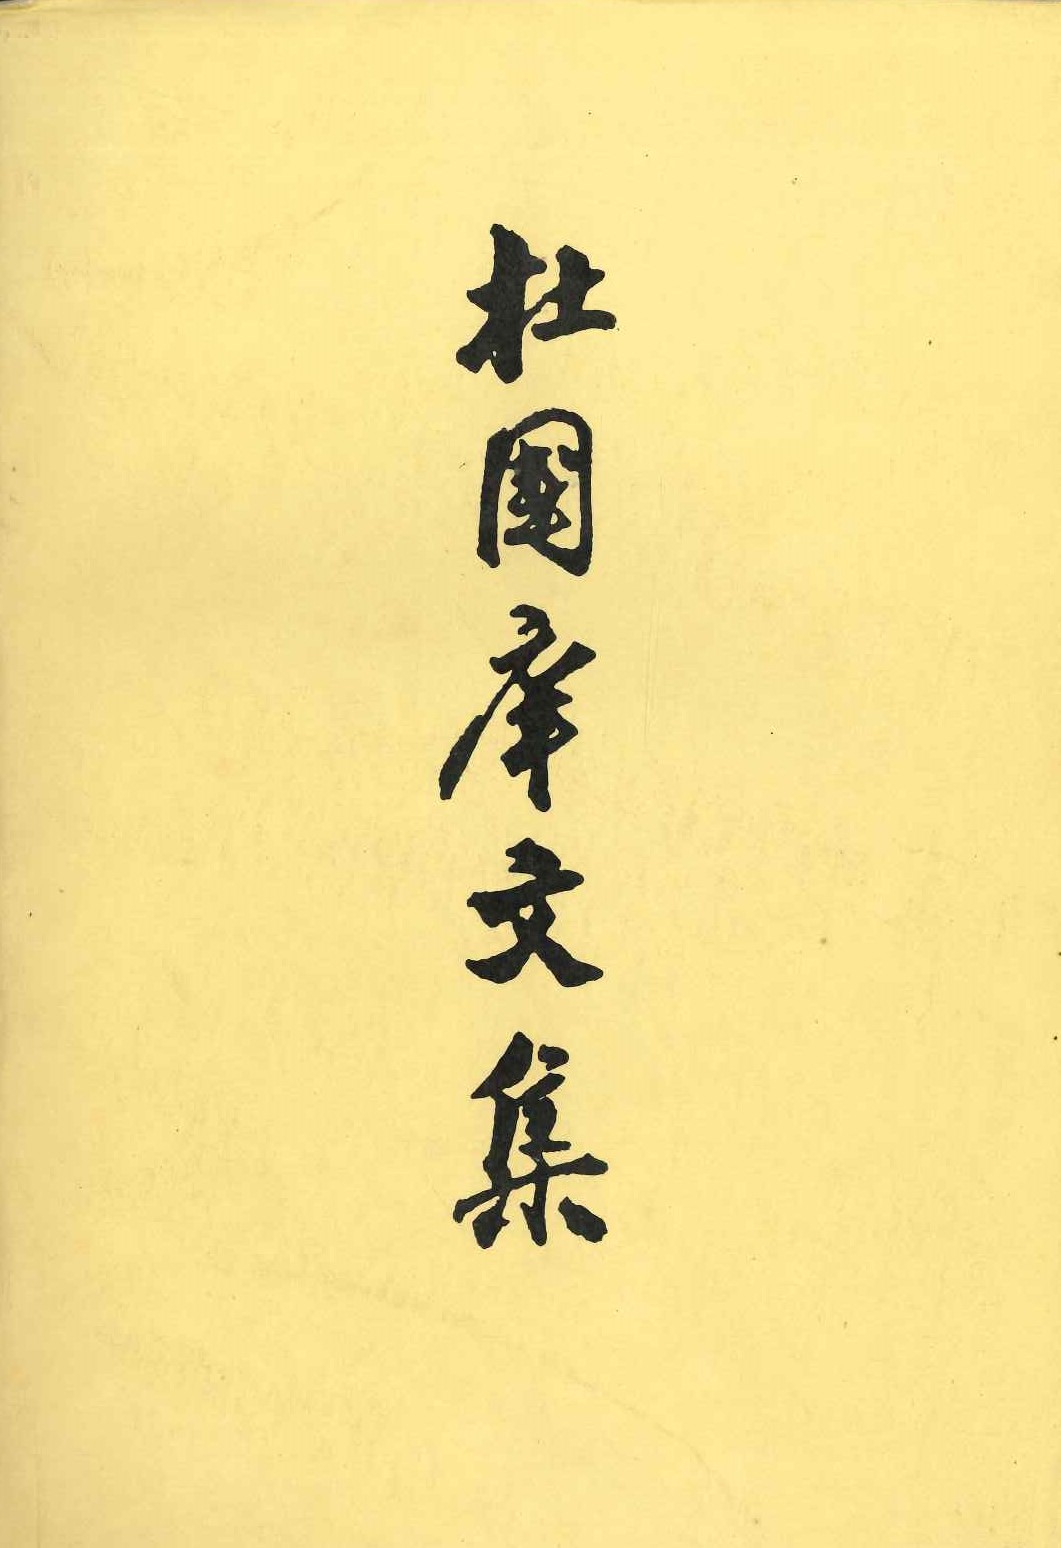 杜国庠文集